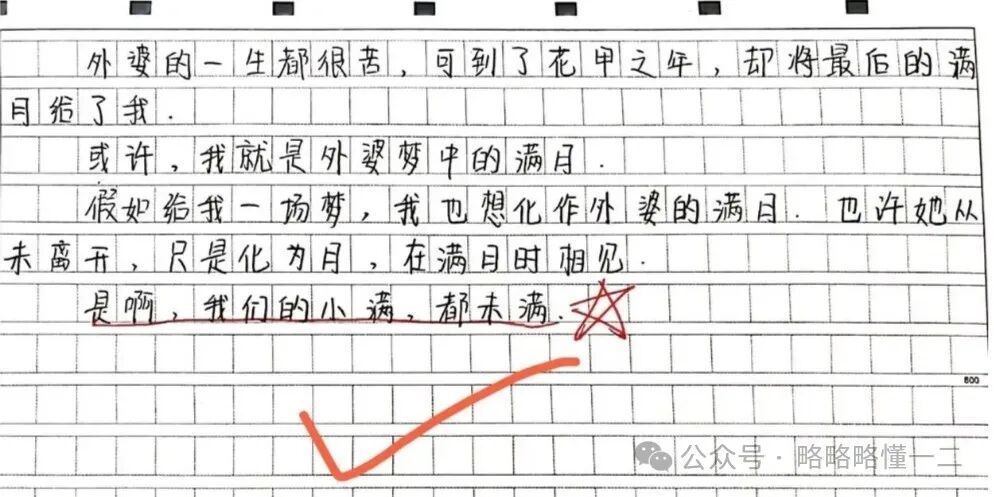 外婆的一生都很苦，可到了花甲之年，却将最后的满
月给了我．
或许，我就是外婆梦中的满月．
假如给我一场梦，我也想化作外婆的满月．也许她从
未离开，只是化为月，在满月时相见．
是啊，我们的小满，都未满．
800
公众号·略略略懂一二